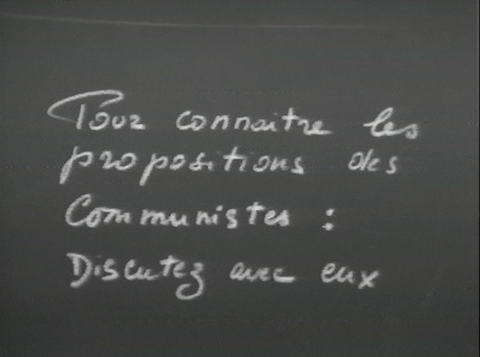 Pour connaitre les
propositions des
Communistes :
Discutez avec eux